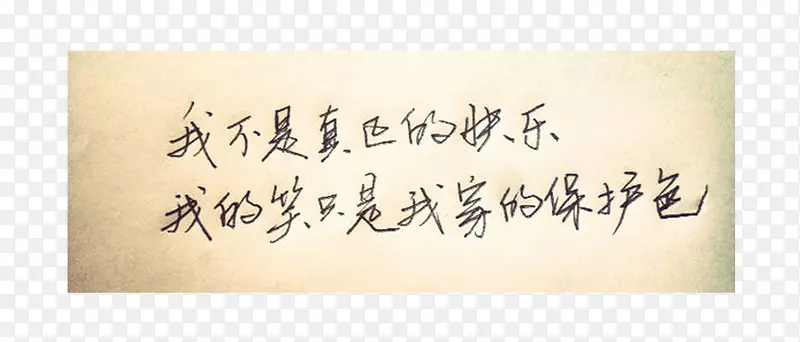 我不是真正的快乐
我的笑只是我穿的保护色